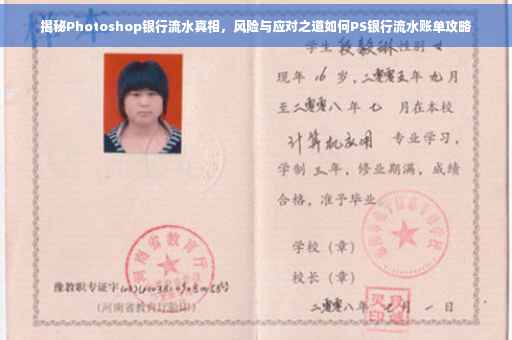 揭秘Photoshop银行流水真相，风险与应对之道如何PS银行流水账单攻略
学生段毅琳性别女
现年16岁，二零零五年九月
至二零零八年七月在本校
计算机应用 专业学习，
学制三年，修业期满，成绩
合格，准予毕业。
学校（章）
校长（章）
二零零八年七月一日
河南省教育厅
豫教职专证字
（河南省教育厅验印）